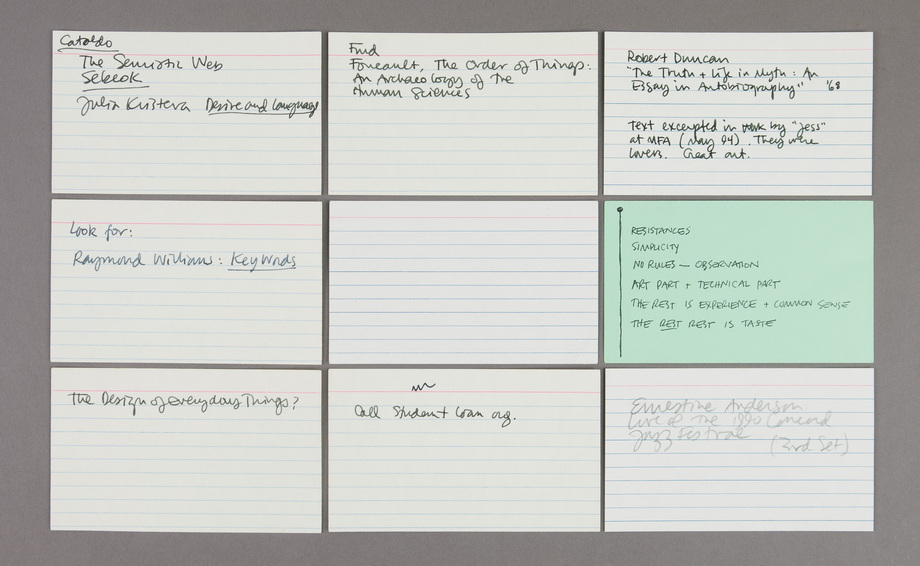 Cataldo
The Semiotic Web
Sebeok
Julia Kristeva Desire and Language
Find
Foucault, The Order of Things:
An Archaeology of the
Human Sciences
Robert Duncan
"The Truth + Life in Myth: An
Essay in Autobiography" '68
Text excerpted in work by "Jess"
at MFA (May 94). They were
lovers. Great art.
Look for:
Raymond Williams: Keywords
RESISTANCES
SIMPLICITY
NO RULES — OBSERVATION
ART PART + TECHNICAL PART
THE REST IS EXPERIENCE + COMMON SENSE
THE REST REST IS TASTE
The Design of everyday Things?
Call Student Loan org.
Ernestine Anderson
Live at the 1990 Concord
Jazz Festival
(3rd Set)